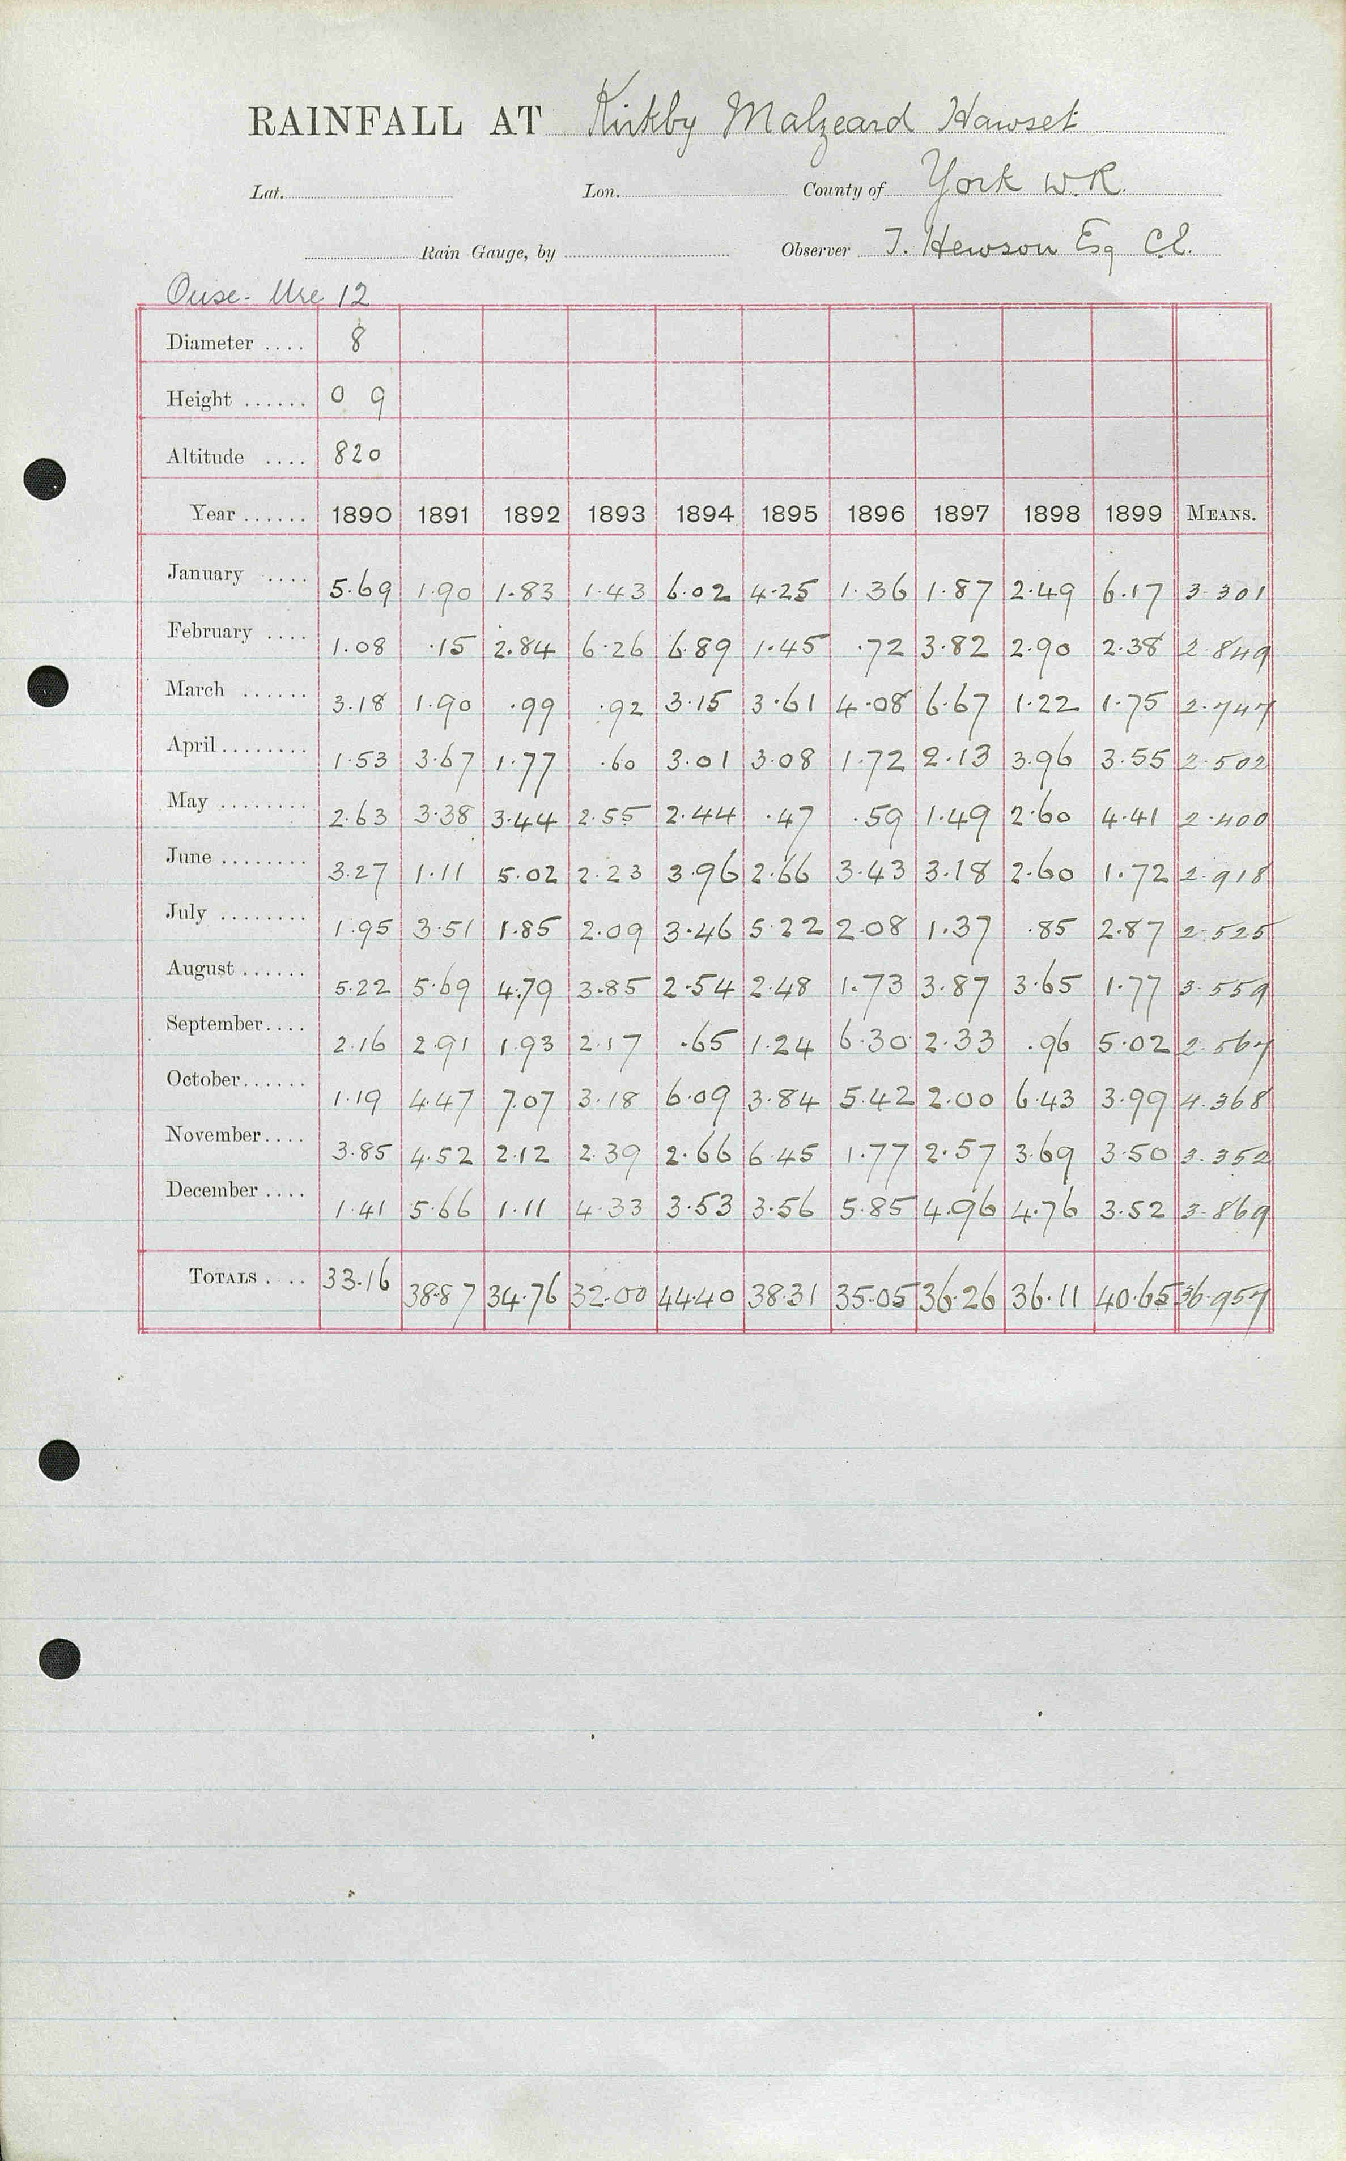 RAINFALL AT Kirkby Malzeard Hawset
Lat. Lon. County of York W.R.
Rain Gauge, by Observer T. Hewson Esq C.E.
Ouse. Ure 12
Diameter .... 8
Height ...... 0 9
Altitude .... 820
Year ...... 1890 1891 1892 1893 1894 1895 1896 1897 1898 1899 MEANS.
January .... 5.69 1.90 1.83 1.43 6.02 4.25 1.36 1.87 2.49 6.17 3.301
February .... 1.08 .15 2.84 6.26 6.89 1.45 .72 3.82 2.90 2.38 2.849
March ...... 3.18 1.90 .99 .92 3.15 3.61 4.08 6.67 1.22 1.75 2.747
April ........ 1.53 3.67 1.77 .60 3.01 3.08 1.72 2.13 3.96 3.55 2.502
May ........ 2.63 3.38 3.44 2.55 2.44 .47 .59 1.49 2.60 4.41 2.400
June ........ 3.27 1.11 5.02 2.23 3.96 2.66 3.43 3.18 2.60 1.72 2.918
July ........ 1.95 3.51 1.85 2.09 3.46 5.22 2.08 1.37 .85 2.87 2.525
August ...... 5.22 5.69 4.79 3.85 2.54 2.48 1.73 3.87 3.65 1.77 3.559
September.... 2.16 2.91 1.93 2.17 .65 1.24 6.30 2.33 .96 5.02 2.567
October...... 1.19 4.47 7.07 3.18 6.09 3.84 5.42 2.00 6.43 3.99 4.368
November.... 3.85 4.52 2.12 2.39 2.66 6.45 1.77 2.57 3.69 3.50 3.352
December .... 1.41 5.66 1.11 4.33 3.53 3.56 5.85 4.96 4.76 3.52 3.869
TOTALS .... 33.16 38.87 34.76 32.00 44.40 38.31 35.05 36.26 36.11 40.65 36.957